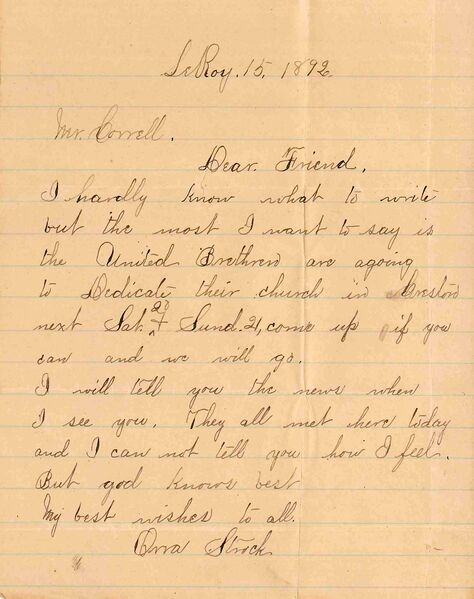 LeRoy. 15, 1892
Mr. Correll.
Dear Friend,
I hardly know what to write
but the most I want to say is
the United Brethren are agoing
to Dedicate their church in Creston
next Sat. 20 & Sund. 21, come up if you
can and we will go.
I will tell you the news when
I see you. They all met here today
and I can not tell you how I feel.
But god knows best
My best wishes to all.
Orra Strock